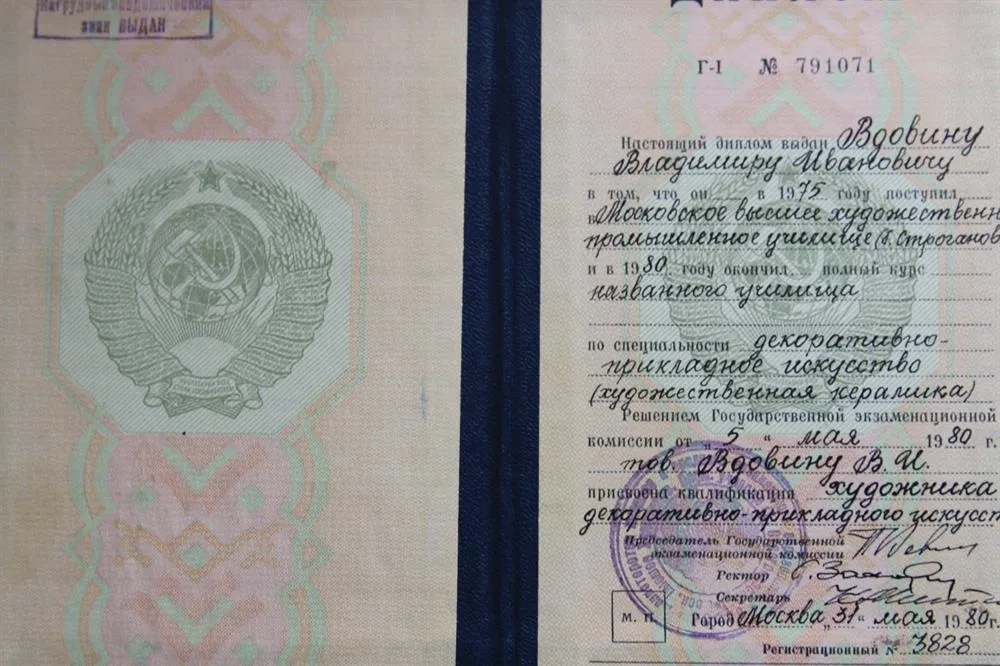 Нагрудный академический
знак ВЫДАН
Диплом
Г-I № 791071
Настоящий диплом выдан Вдовину
Владимиру Ивановичу
в том, что он в 1975 году поступил
в Московское высшее художественн
промышленное училище (б. Строганов
и в 1980 году окончил полный курс
названного училища
по специальности декоративно-
прикладное искусство
(художественная керамика)
Решением Государственной экзаменационной
комиссии от „5“ мая 1980 г.
тов. Вдовину В. И.
присвоена квалификация художника
декоративно-прикладного искусст
Председатель Государственной
экзаменационной комиссии
Ректор
Секретарь
М. П. Город Москва „31“ мая 1980 г.
Регистрационный № 3828